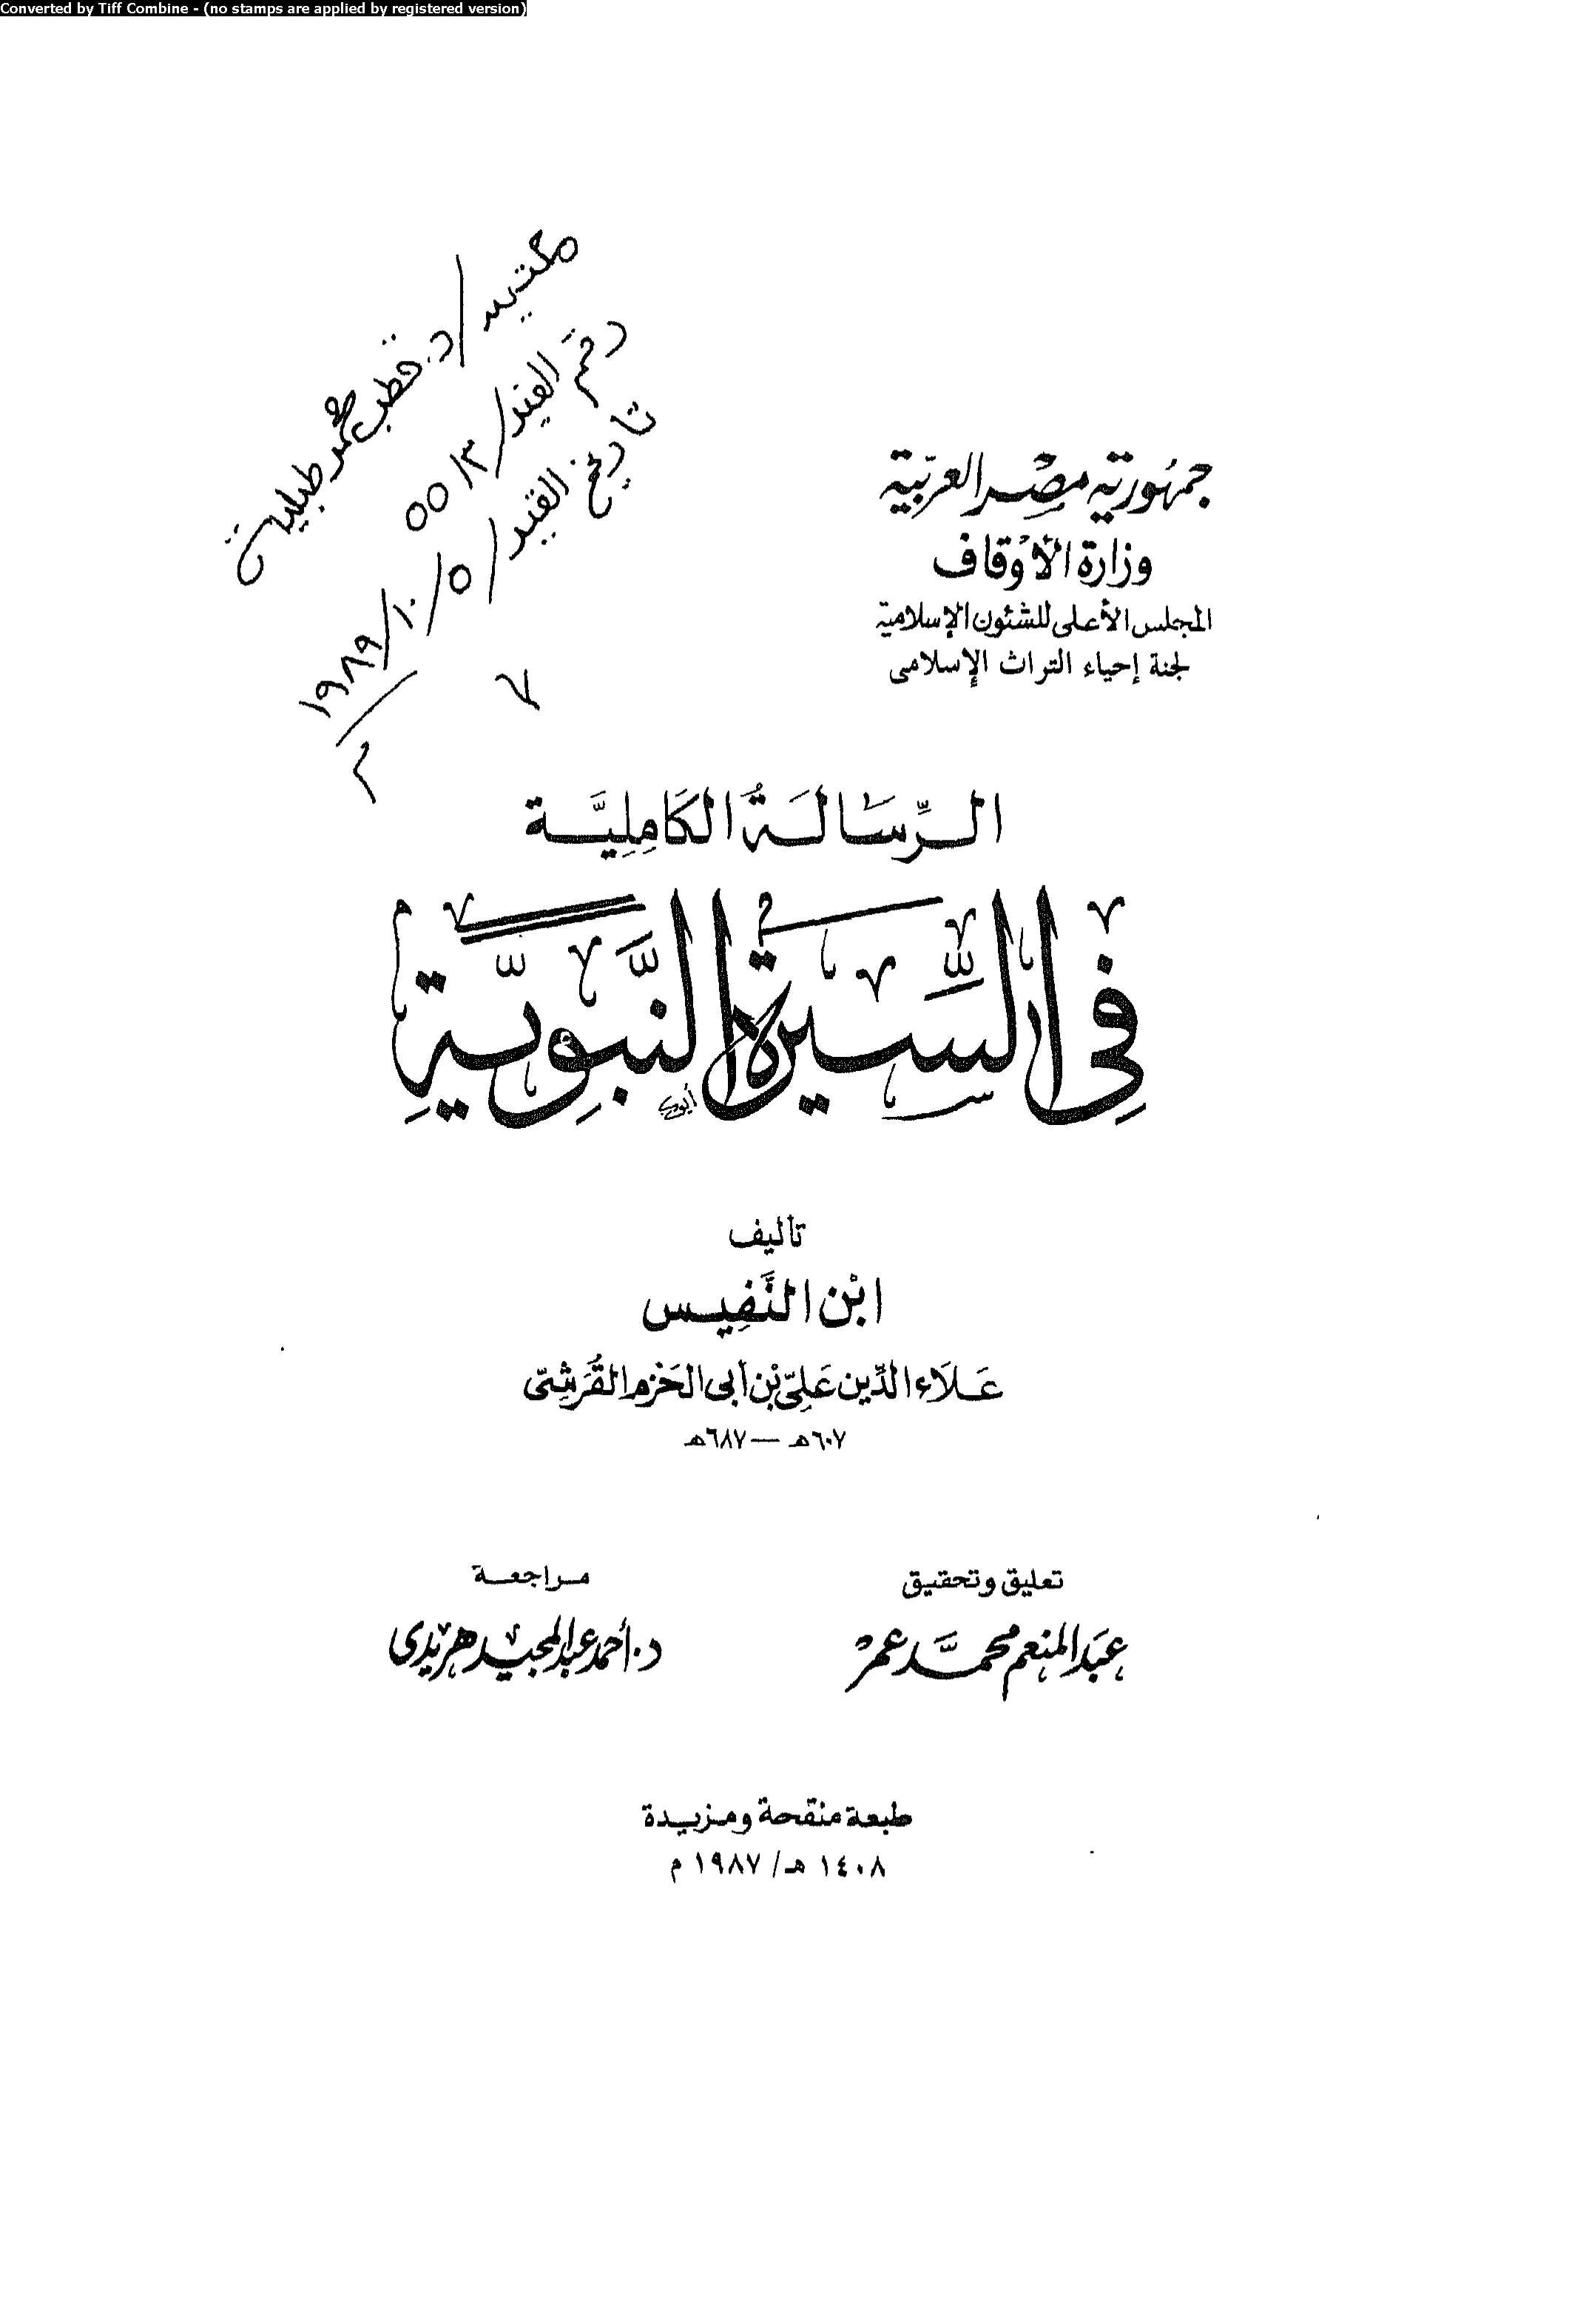 Converted by Tiff Combine - (no stamps are applied by registered version)
مكتبة / د. قطب محمد طبلية
رقم القيد / ٥٥/٣
تاريخ القيد / ٥/١٠/١٩٨٩
م
جمهورية مصر العربية
وزارة الأوقاف
المجلس الأعلى للشئون الإسلامية
لجنة إحياء التراث الإسلامى
الرِّسَالَةُ الكَامِلِيَّة
فِى السِّيرة النَّبَوِيَّةِ
تأليف
ابْن النَّفِيس
عَلَاء الدِّين عَلِىّ بْن أبى الحَزم القُرَشِىّ
٦٠٧هـ — ٦٨٧هـ
تعليق وتحقيق
عبَد المنعم محمَّد عمرْ
مراجعة
د. أحمد عبد المجيد هريدى
طبعة منقحة ومزيدة
١٤٠٨ هـ / ١٩٨٧ م